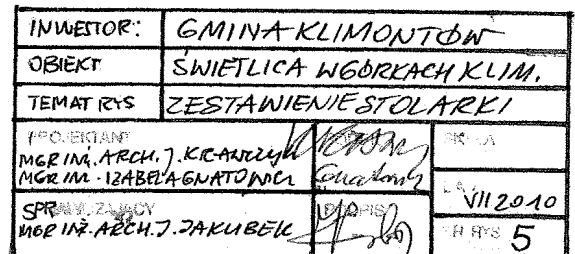 INWESTOR: GMINA KLIMONTÓW
OBIEKT ŚWIETLICA W GÓRKACH KLIM.
TEMAT RYS ZESTAWIENIE STOLARKI
PROJEKTANT
MGR INŻ. ARCH. J. KRAWCZYK
MGR INŻ. IZABELA GNATOWICZ
SPRAWDZAJĄCY PODPIS
MGR INŻ. ARCH. J. JAKUBEK
SKALA
DATA VII 2010
NR RYS 5